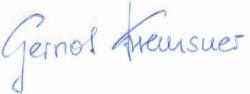 Gernot Kremsner